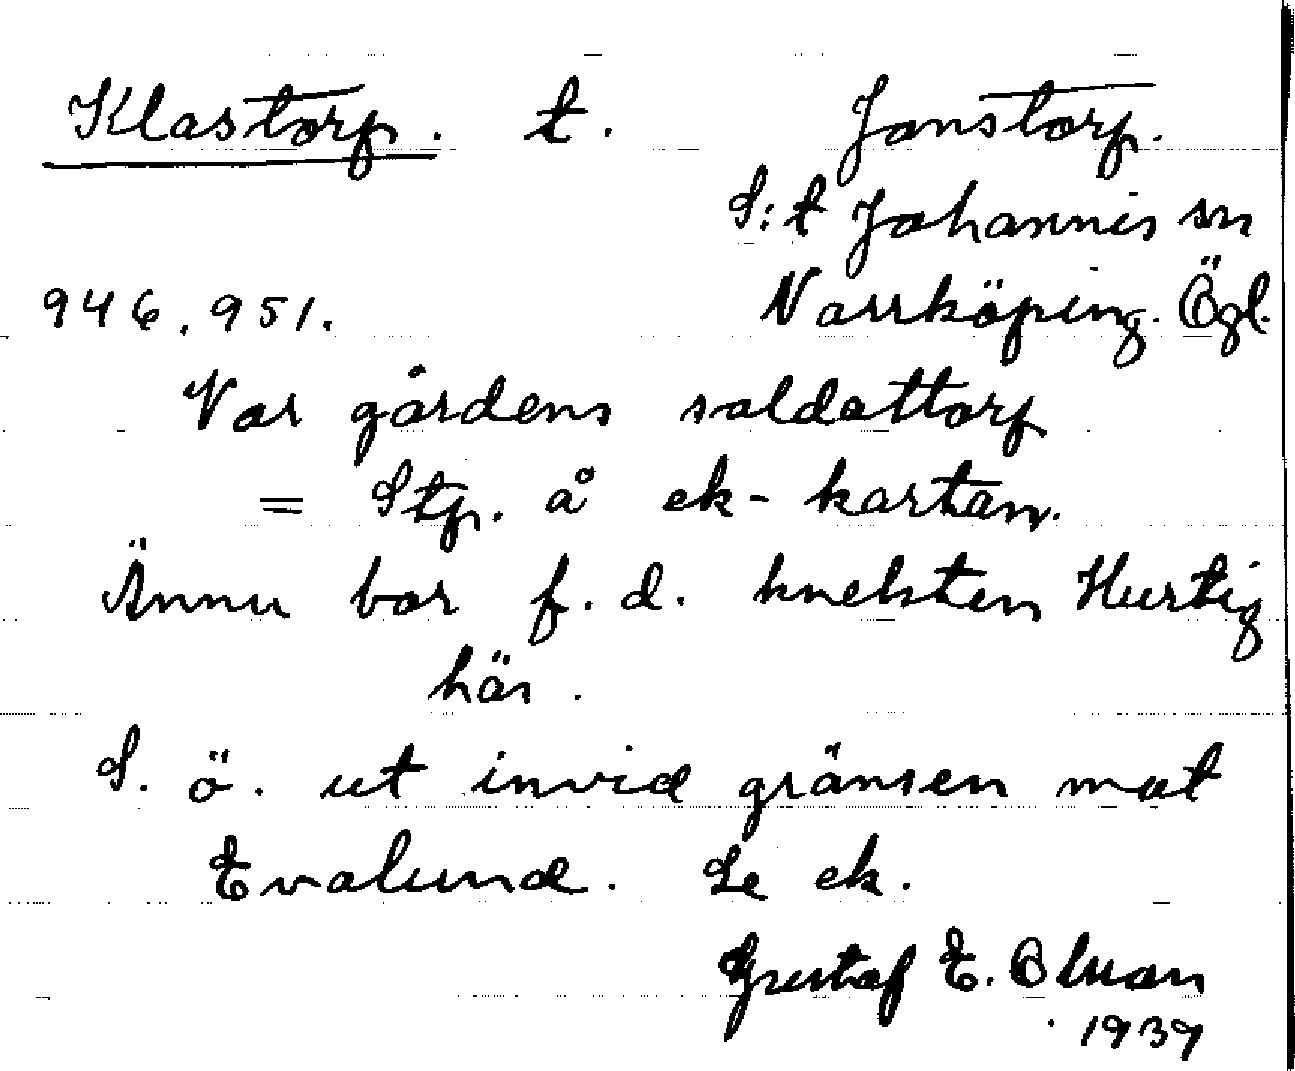 Klastorp. t. Janstorp.
S:t Johannis sn
946. 951. Norrköping. Ögl.
Var gårdens soldattorp
= Stp. å ek-kartan.
Ännu bor f. d. knekten Hurtig
här.
S. ö. ut invid gränsen mot
Evalund. Se ek.
Gustaf E. Olson
1939